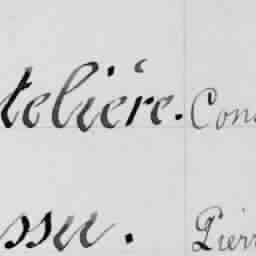 telière. Con
ssu. Pierr